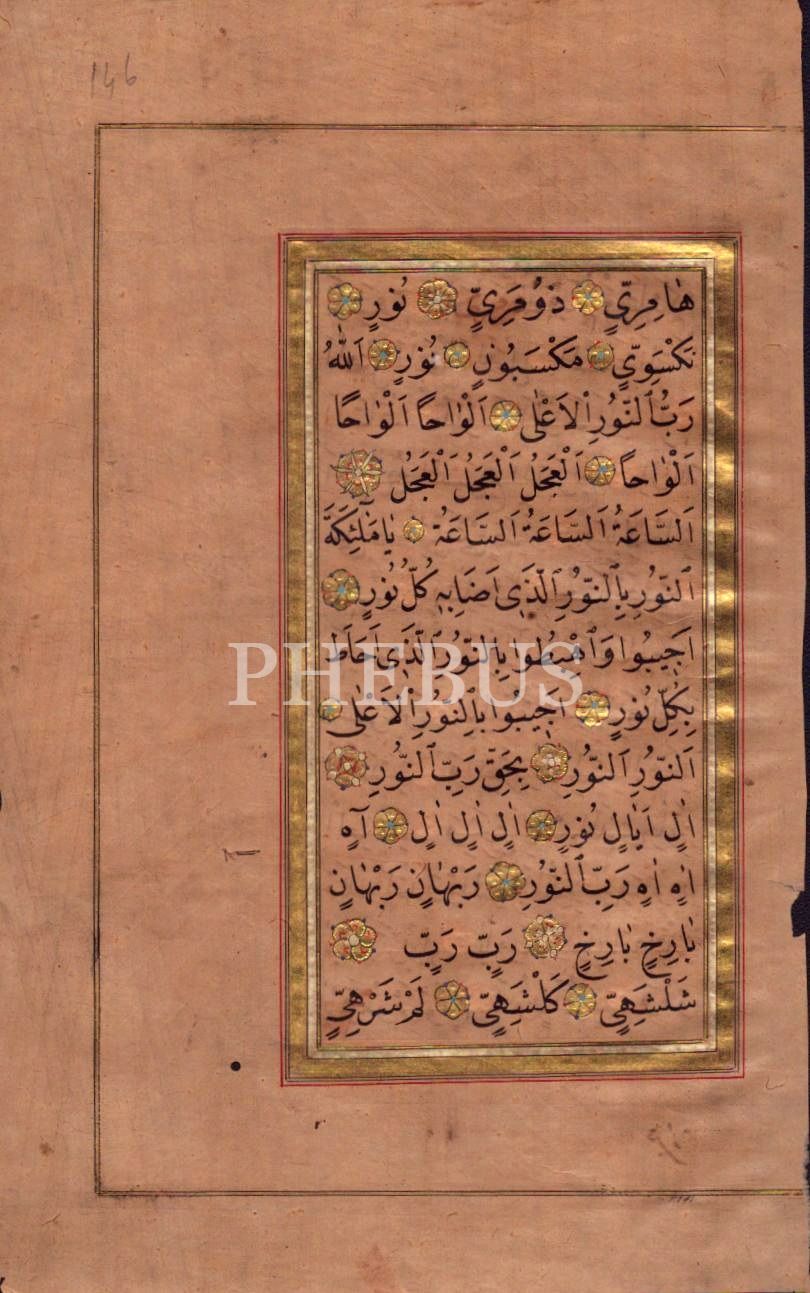 146
هَامِرِيٍّ ذَوُمَرِيٍّ نُورٍ
نَكْسَوِيٍّ مَكْسَبُونٍ نُورٍ اَللّٰهُ
رَبُّ النُّورِ الْاَعْلٰى اَلْوَاحًا اَلْوَاحًا
اَلْوَاحًا اَلْعَجَلُ اَلْعَجَلُ اَلْعَجَلُ
اَلسَّاعَةُ اَلسَّاعَةُ اَلسَّاعَةُ يَا مَلٰئِكَةَ
النُّورِ بِالنُّورِ الَّذِي اَضَا بِهِ كُلُّ نُورٍ
اَجِيبُوا وَاهْبِطُوا بِالنُّورِ الَّذِي اَحَاطَ
بِكُلِّ نُورٍ اَجِيبُوا بِالنُّورِ الْاَعْلٰى
اَلنُّورِ النُّورِ بِحَقِّ رَبِّ النُّورِ
اٰلٍ اَيَالٍ نُورٍ اٰلٍ اٰلٍ اٰلٍ آهٍ
اٰهٍ اٰهٍ رَبِّ النُّورِ رَبْهَانٍ رَبْهَانٍ
بَارِخٍ بَارِخٍ رَبٍّ رَبٍّ
شَلْشَهِيٍّ كَلْشَهِيٍّ لَمْ شَرْهِيٍّ
PHEBUS